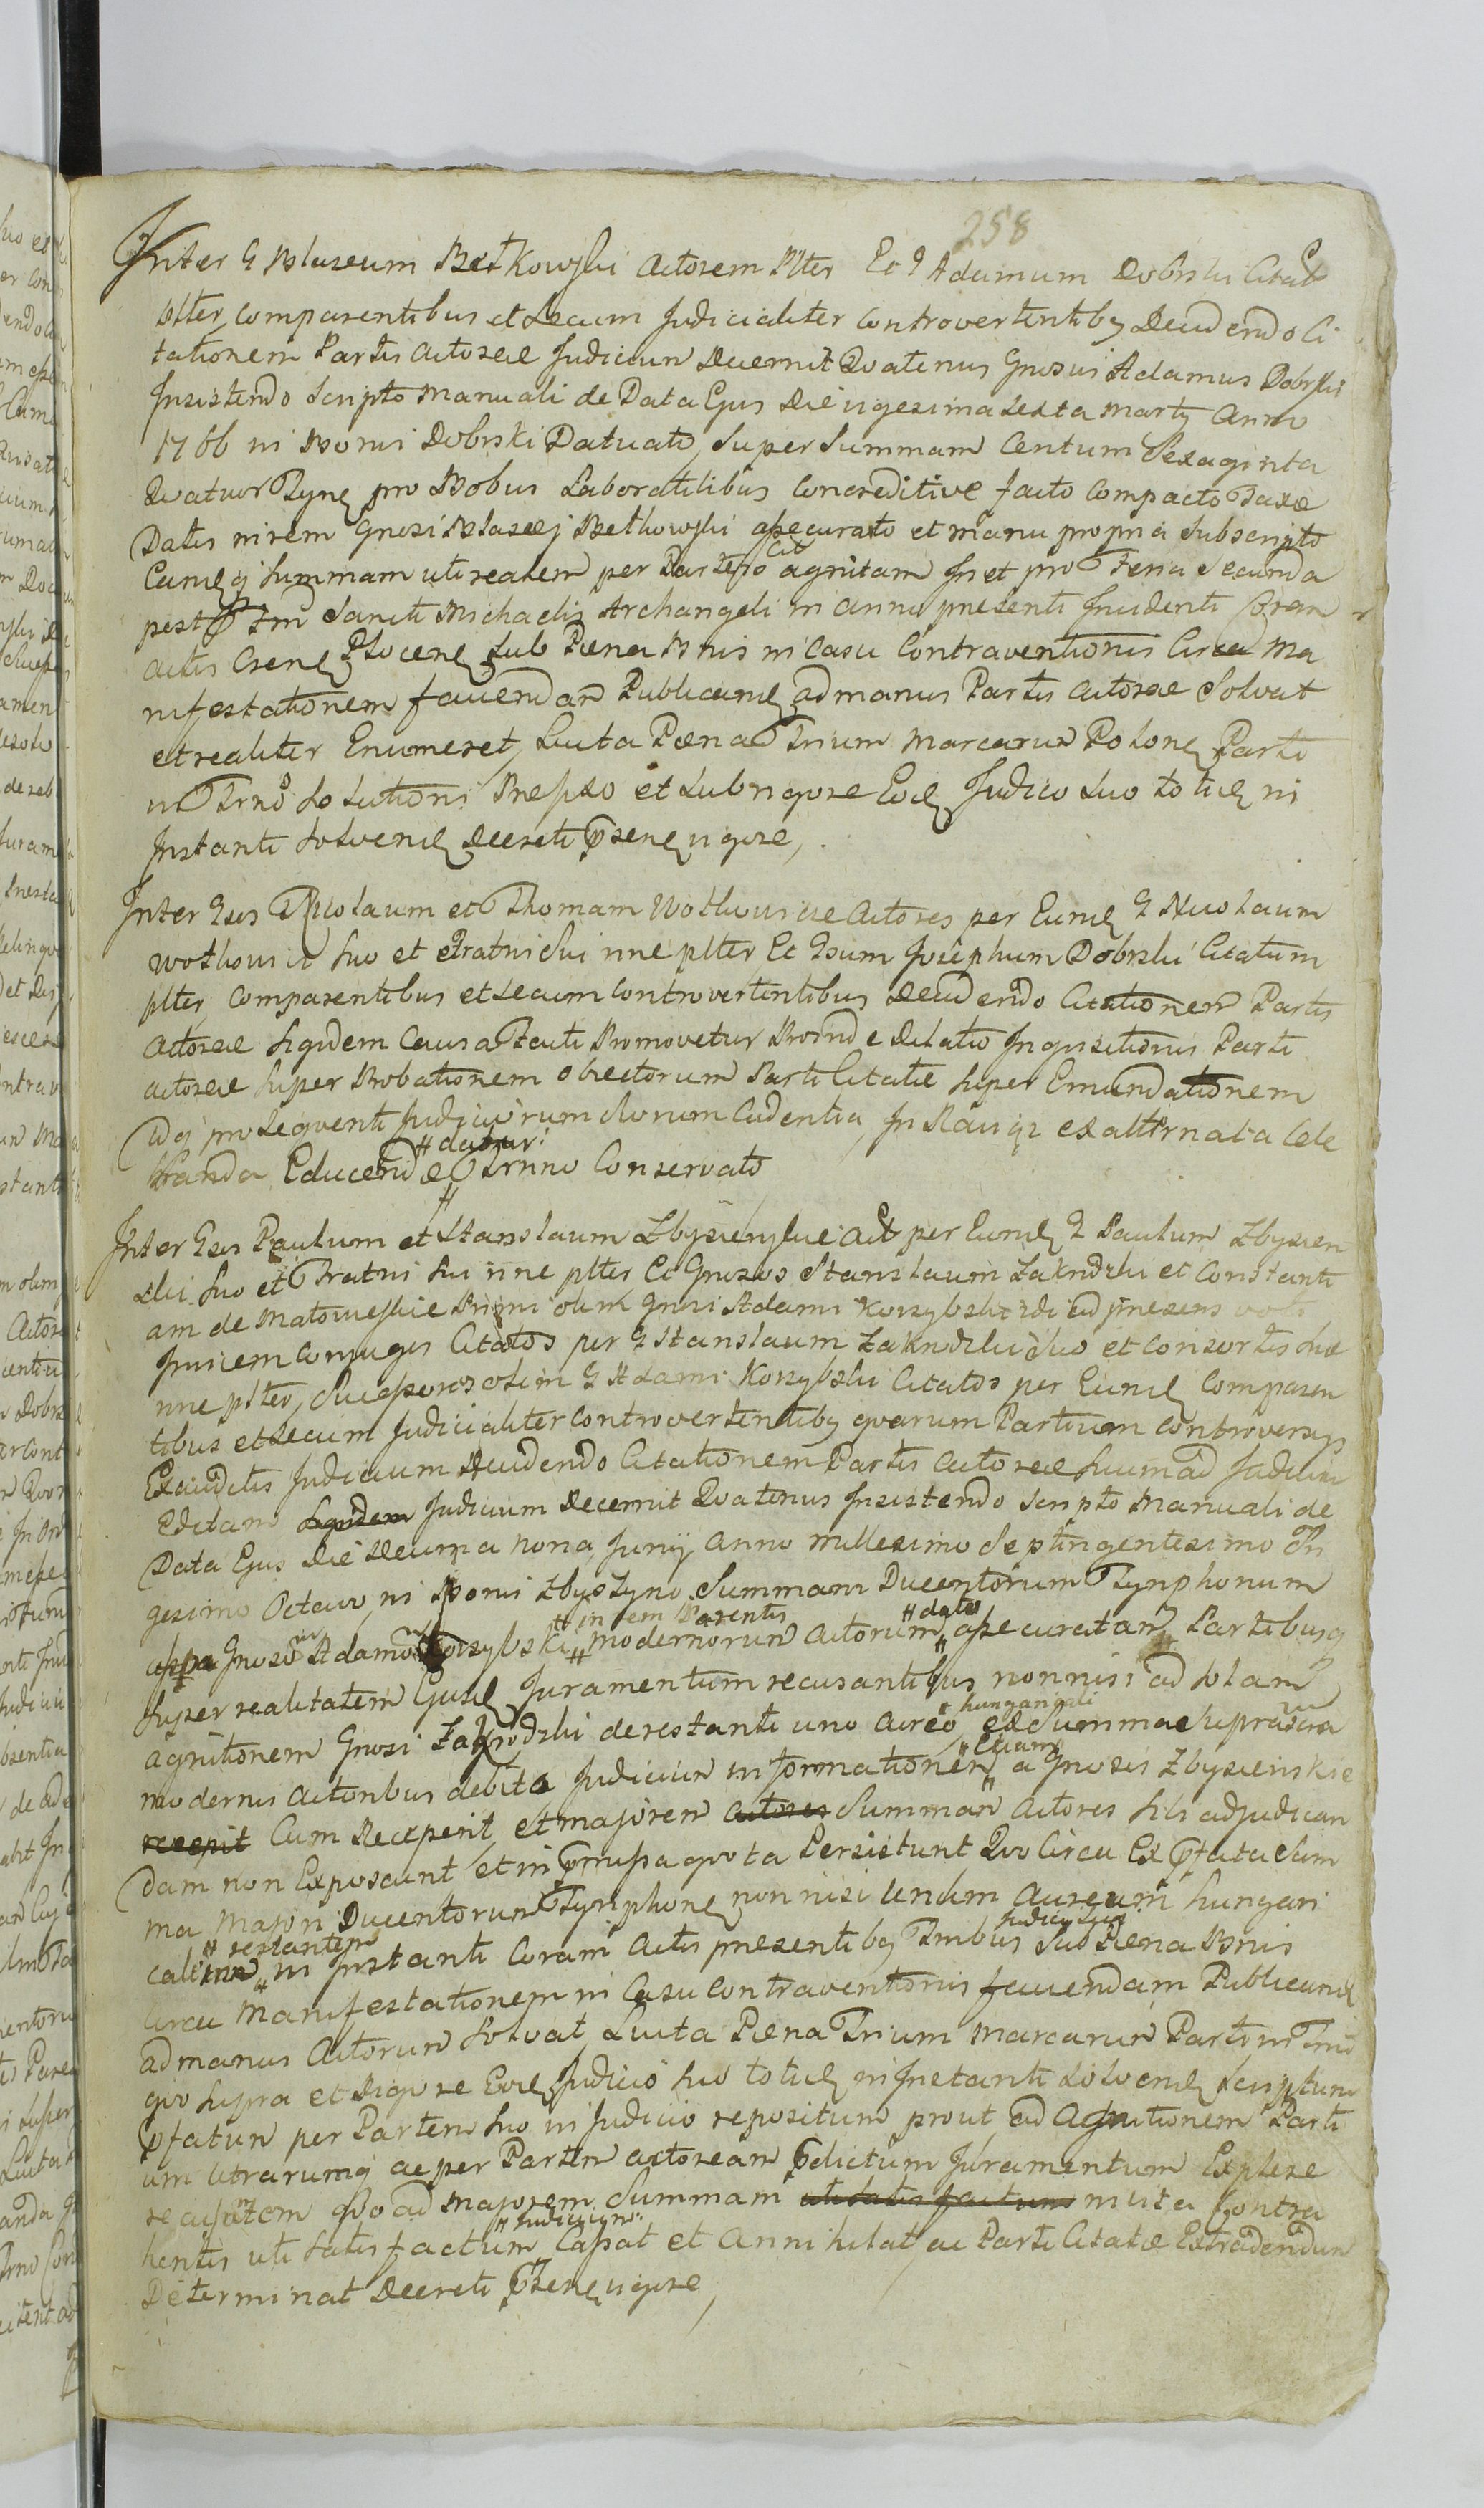 258
Inter G Blaseum Betkowski Actorem plter Et G Adamum Dobrski Citat
plter comparentibus et secum Judicialiter controvertentibq Decidendo Ci
tationem Partis Actoreae Judicium Decernit Quatenus Gnosus Adamus Dobrski
Insistendo scripto manuali de Data Ejus Die vigesima Sexta Martij Anno
1766 in Bonis Dobrski Datuato, super summam Centum Sexaginta
Quatuor Tynq pro Bobus Laboratilibus concreditive facto compacto Taxae
Datis in rem Gnosi Blaseij Betkowski assecurato et manu propria subscripto
Eamq summam uti realem per Partem Cit agnitam In et pro Feria Secunda
post Ftm Sancti Michaelis Archangeli in anno presenti Incidenti Coram
actis Csenq Plocenq sub Paena Bnis in Casu Contraventionis Circa Ma
nifestationem faciendam Publicanq ad manus Partis Actoreae Solvat
et realiter Enumeret, Luita Paena Trium Marcarum Polonq Parti
in Trno Solutionis Prefixo et sub rigore Eodq Judicio suo totidq in
Instanti Solvendq Decreti psenq vigore,
Inter Gsos Nicolaum et Thomam Wotkowicie Actores per Eundq G Nicolaum
Wotkowicz suo et Fratris sui nne plter Et Gsum Josephum Dobrski Citatum
plter comparentibus et secum controvertentibus Decidendo Citationem Partis
Actoreae siqdem Causa Facti Promovetur Proinde Dilatio Inquisitionis Parti
actoreae super Probationem obiectorum Parti Citatae super Emundationem
adq prosequenti Judiciorum suorum Cadentia, In Raciąz ex alternata Cele
branda Educendae Trnno Conservato
# datur
Inter Gsos Paulum et Stanslaum Zbysienskie Act per Eundq G Paulum Zbysien
ski suo et Fratris sui nne plter Et Gnosos Stanslaum Zakrodzki et Constanti
am de Matowieskie Primi olim Gnosi Adami Korzybski idi ad presens voti
Invicem conjuges Citatos per G Stanslaum Zakrodzki suo et consortis suae
nne plter, successores olim G Adami Korzybski Citatos per Eundq Comparen
tibus et secum Judicialiter controvertentibq quarum Partium controversijs
Exauditis Judicium Decidendo Citationem Partis Actoreae suum ad Judicium
Editam siqdem Judicium Decernit Quatenus Insistendo scripto Manuali de
Data Ejus Die Decima nona Junij Anno millesimo Septingentesimo Tri
gesimo Octavo, in Bonis Zbyszyno, Summam Ducentorum Tynphonum
# in rem Parentis # dato
Gnoso Adamo Korzybski modernorum actorum assecuratam Partibusq
super realitatem Ejusq Juramentum recusantibus nonnisi ad solam
hungaricali
agnitionem Gnosi Zakrodzki de restanti uno aureo ex summae suprascra
# Etiam
modernis actoribus debita Judicium informationem a Gnosis Zbysienskie
recepit Cum Receperit, et majorem actores summam actores sibi adjudican
dam non Exposcunt et in promissa quota Persistunt Quo Circa Ex pfata Sum
ma Majori Ducentorum Tynphonq nonnisi unum aureum hungari
# restantem Judicij sui
calem in Instanti Coram actis presentibq Tmbus Sub Paena Bnis
circa Manifestationem in Casu contraventionis faciendam Publicandq
ad manus Actorum Solvat, Luita Paena Trium Marcarum Parti in Trno
quo supra et Rigore Eodq Judicio suo totidq in Instanti Solvendq scriptum
pfatum per Partem suo in Judicio repositum prout ad agnitionem Parti
um Utrarumq ac per Partem actoream pdictum Juramentum Explere
recusantem Quo ad majorem Summam uti satis factum in vita Contra
# Judicium
hentis uti satis factum Cassat et annihilat ac Parti Citatae Extradendum
Determinat Decreti psenq vigore,